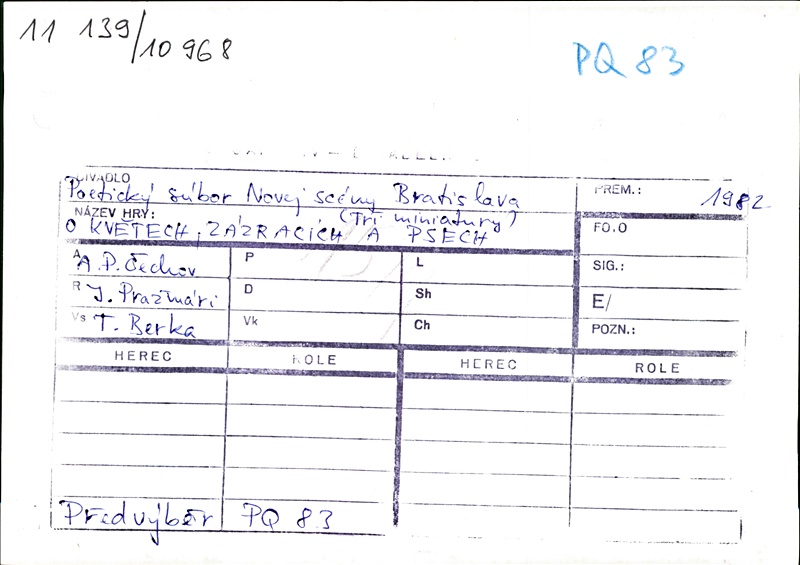 11 139/10 968
PQ 83
DIVADLO
Poetický súbor Novej scény Bratislava
PREM.: 1982
NÁZEV HRY: (Tri miniatury)
O KVĚTECH, ZÁZRACÍCH A PSECH
FO.O
A A.P. Čechov P L
SIG.:
R J. Pražmári D Sh
E/
Vs T. Berka Vk Ch
POZN.:
HEREC ROLE HEREC ROLE
Předvýběr PQ 83